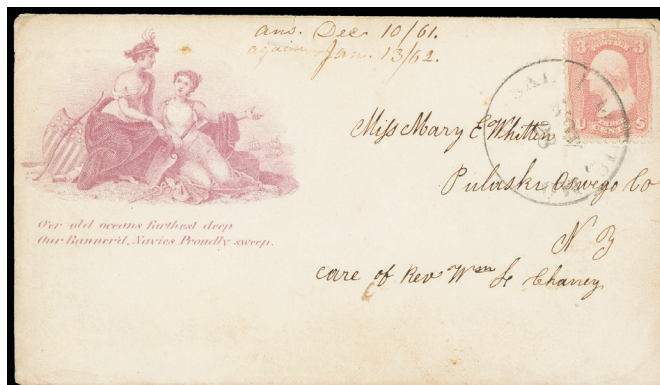 ans. Dec 10/61.
again Jan. 13/62.
3 U.S. POSTAGE 3
U THREE CENTS S
Miss Mary E Whitten
Pulaski Oswego Co
N Y
care of Rev Wm
O'er old oceans furthest deep
Our Banner'd, Navies Proudly sweep.